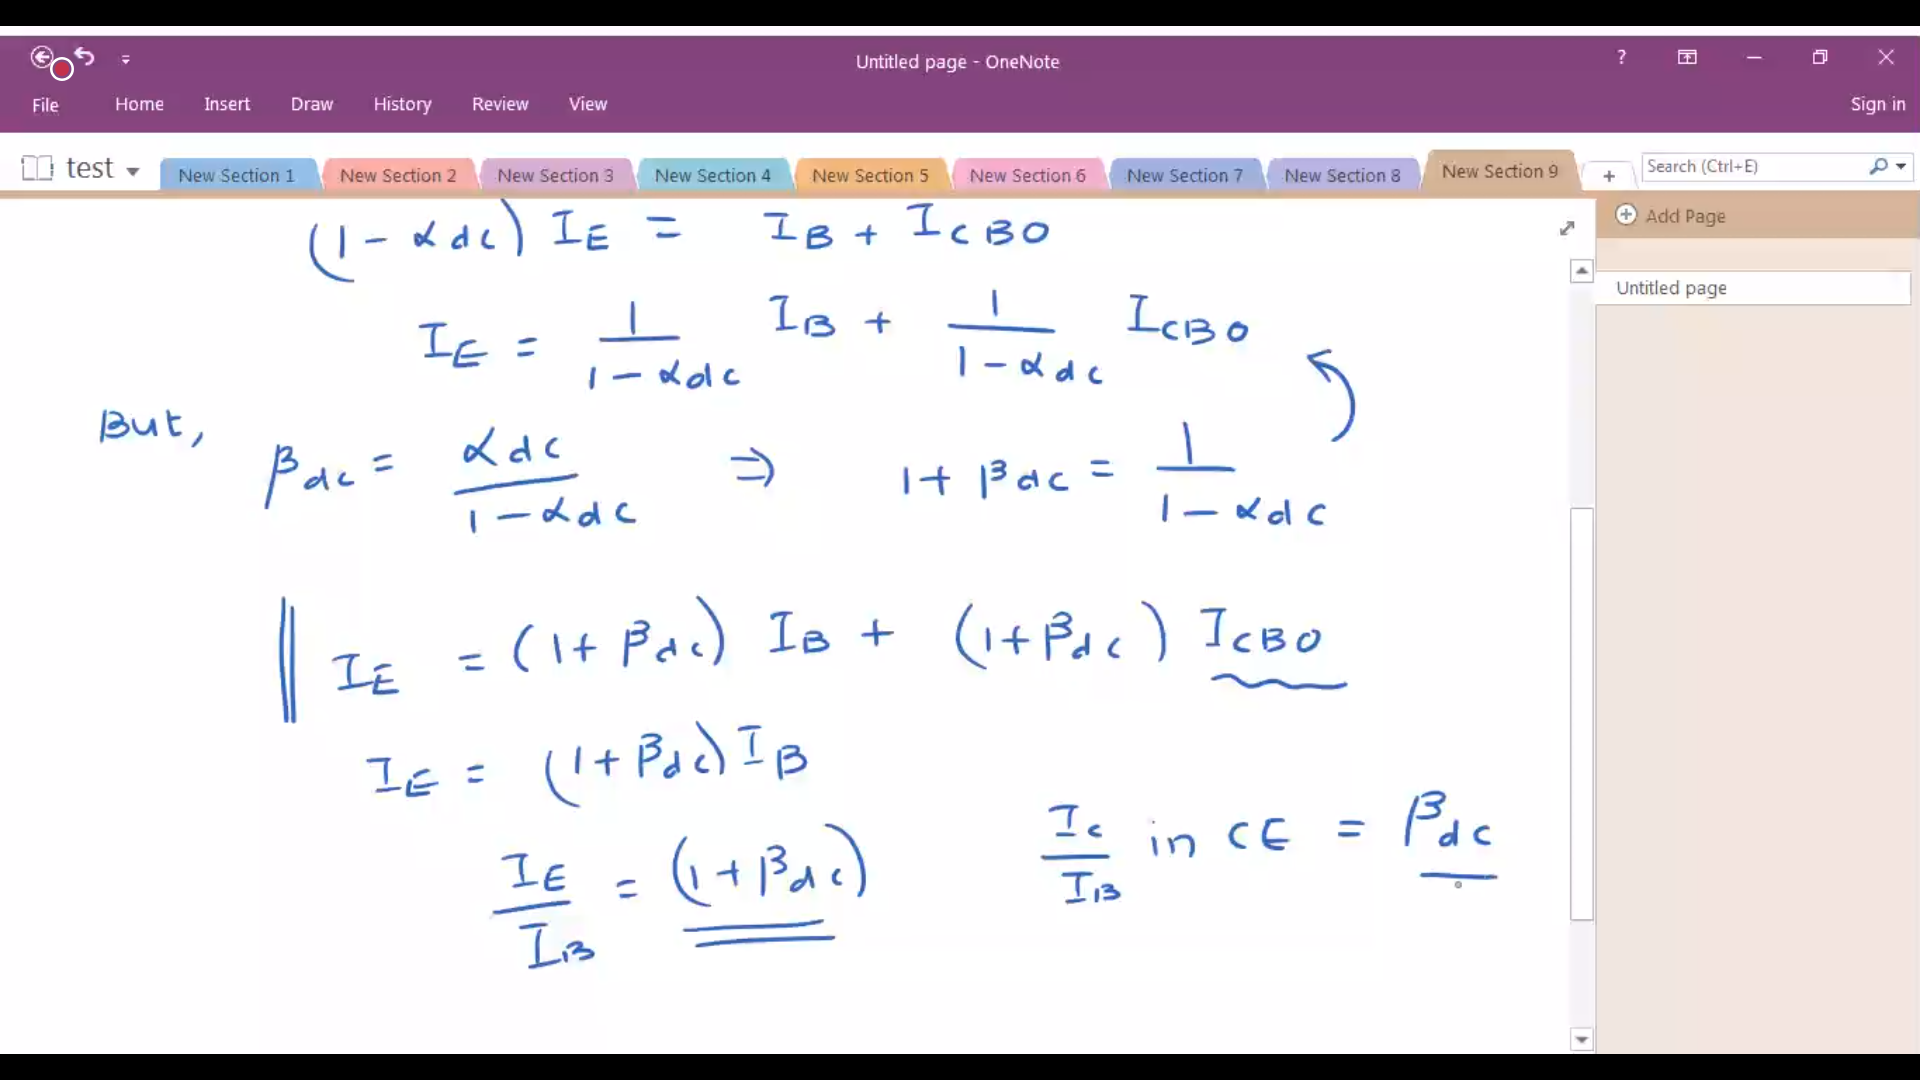 Untitled page - OneNote
?
File Home Insert Draw History Review View Sign in
test New Section 1 New Section 2 New Section 3 New Section 4 New Section 5 New Section 6 New Section 7 New Section 8 New Section 9 + Search (Ctrl+E)
Add Page
Untitled page
(1 - αdc) IE = IB + ICBO
IE = 1/(1 - αdc) IB + 1/(1 - αdc) ICBO
But,
βdc = αdc/(1 - αdc) ⇒ 1 + βdc = 1/(1 - αdc)
IE = (1 + βdc) IB + (1 + βdc) ICBO
IE = (1 + βdc) IB
IE/IB = (1 + βdc)
IC/IB in CE = βdc